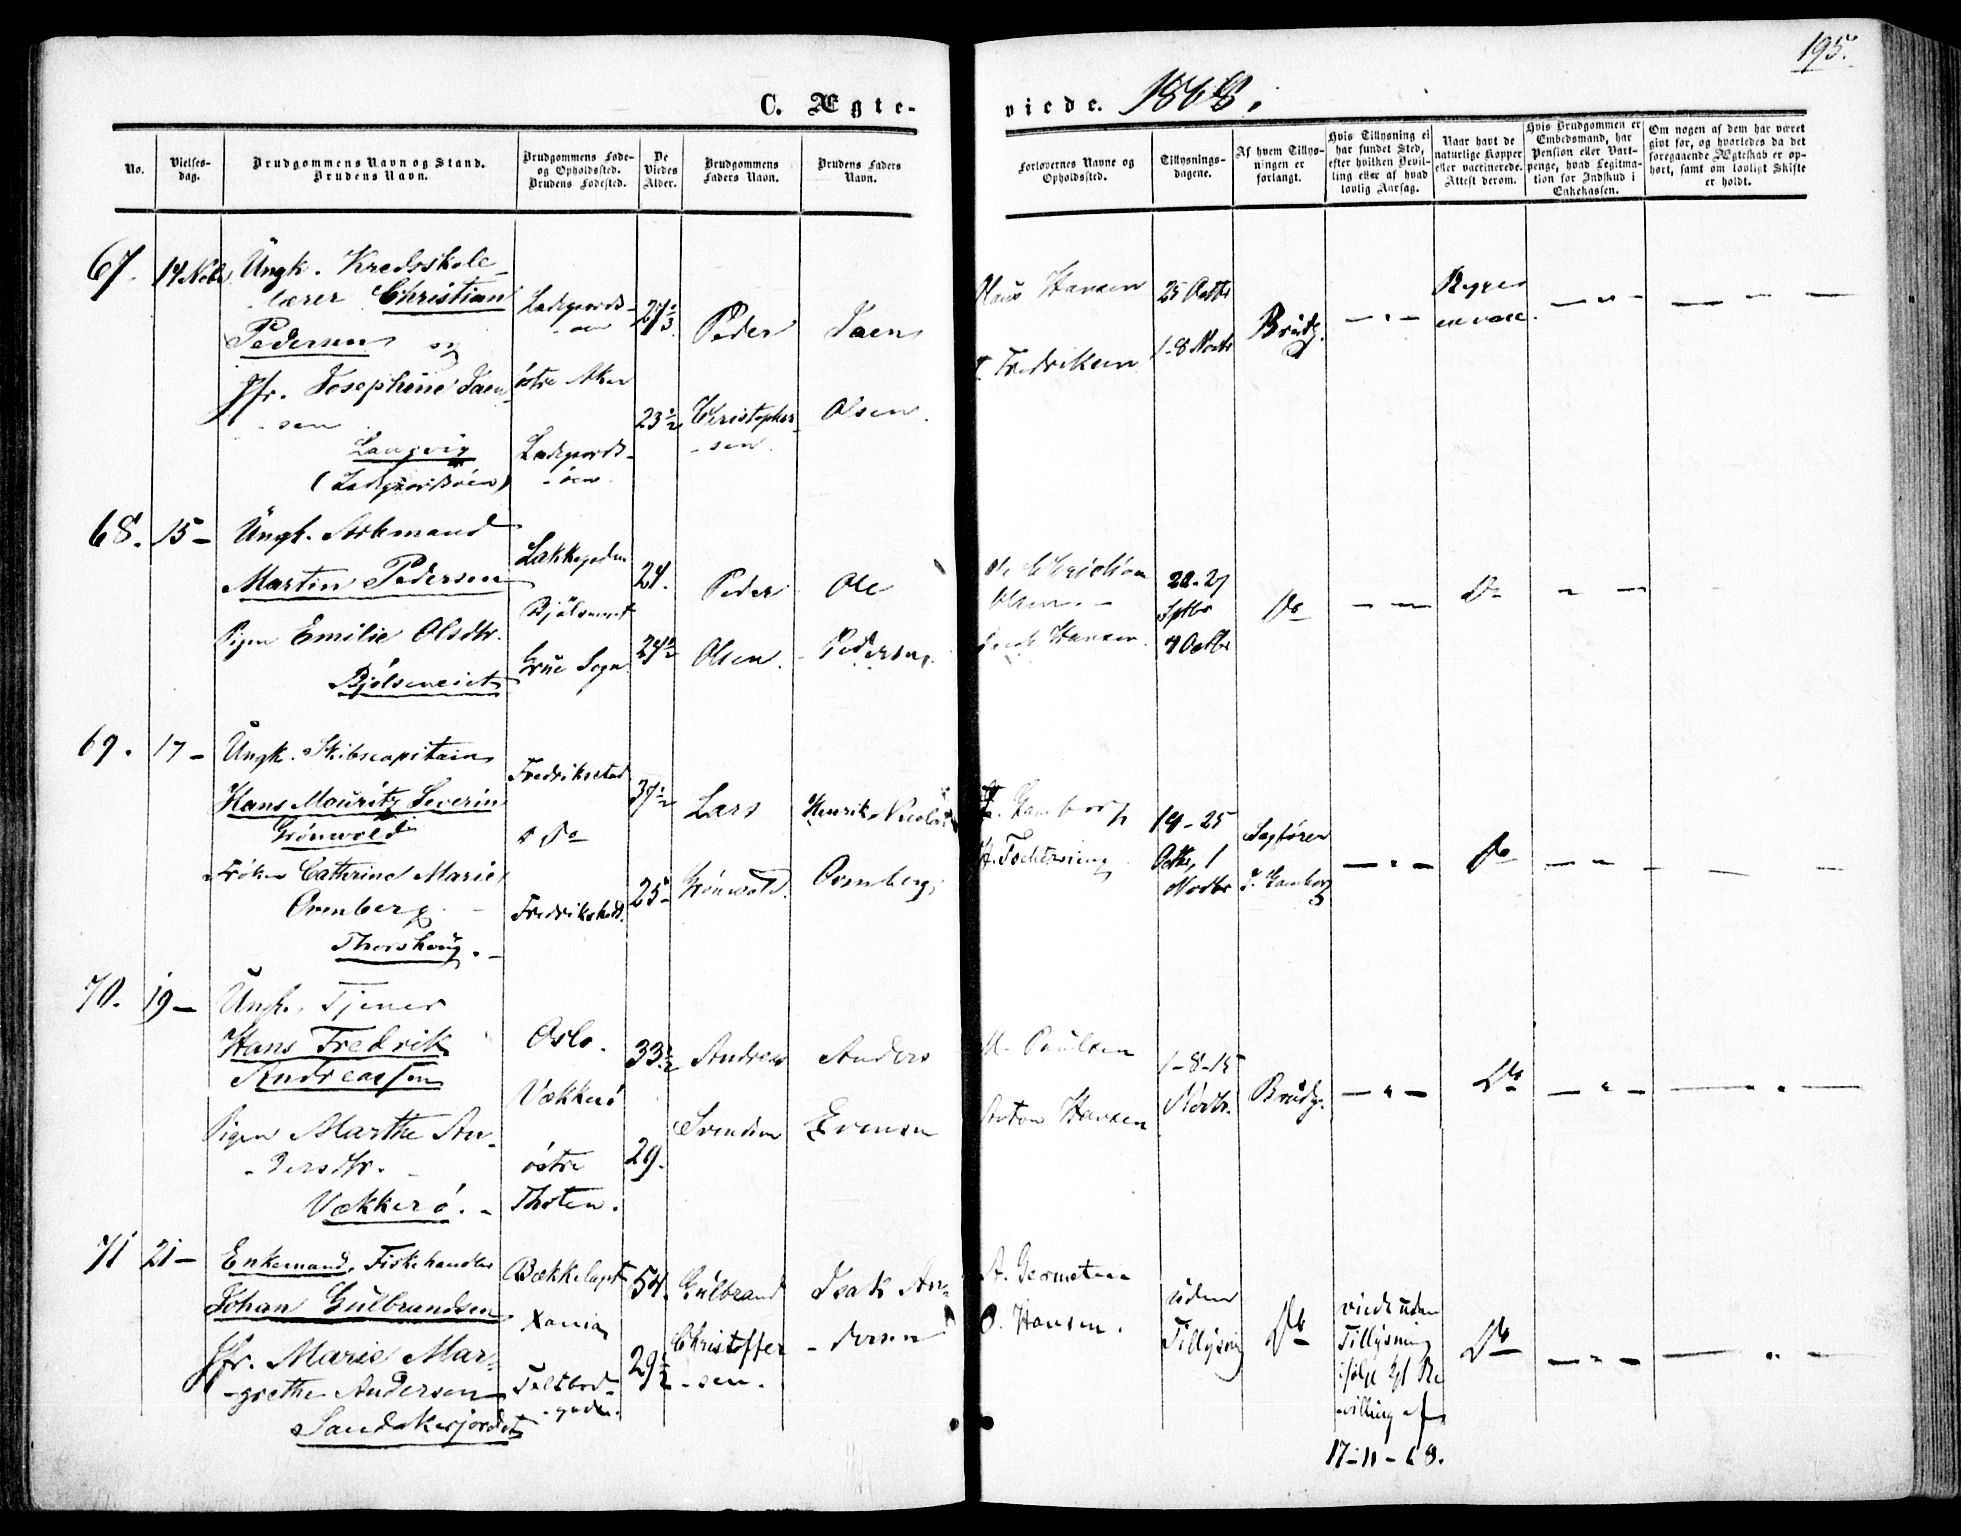 195.
C. Ægte-
viede. 1868.
No.
Vielses-
dag.
Brudgommens Navn og Stand.
Brudens Navn.
Brudgommens Føde-
og Opholdssted.
Brudens Fødested.
De
Viedes
Alder.
Brudgommens
Faders Navn.
Brudens Faders
Navn.
Forlovernes Navne og
Opholdssted.
Tillysnings-
dagene.
Af hvem Tillys-
ningen er
forlangt.
Hvis Tillysning ei
har fundet Sted,
efter hvilken Bevil-
ling eller af hvad
lovlig Aarsag.
Naar havt de
naturlige Kopper
eller vaccinerede.
Attest derom.
Hvis Brudgommen er
Embedsmand, har
Pension eller Vart-
penge, hvad Legitma-
tion for Indskud i
Enkekassen.
Om nogen af dem har været
givt for, og hvorledes da det
foregaaende Ægteskab er op-
hørt, samt om lovligt Skifte
er holdt.
67. 14 Novbr
Ungk. Kredsskole-
lærer Christian
Pedersen og
Jfr. Josephine Jaen-
sen
Langvig
(Ladegaardsøen)
Ladegaards-
øen
østre Aker
Ladegaards-
øen
27
23 1/2
Peder
Christopher-
-sen.
Jaen
Olsen.
Hansen
Fredriksen
25 Octbr
1-8 Novbr
Brudg.
68. 15 -
Ungk. Arbmand
Martin Pedersen
Pigen Emilie Olsdtr.
Bjølseneiet
Lakkegaden
Bjølseneiet
Grue Sogn
24.
24
Peder
Olsen.
Ole
Pedersen.
Ole Christian
Olsen. -
Hansen.
20-27
Sptbr
4 Octbr
Do
Do
69. 17 -
Ungk. Skibscapitain
Hans Mouritz Severin
Grønwold
Frøken Cathrine Marie
Ovenberg
Thorshoug. -
Fredriksstad
s. So
Fredrikshald.
37 1/2
25
Lars
Grønwold.
Henrik Nicolai
Ovenberg.
14-25
Octbr, 1
Novbr
Sagfører
Do
70. 19 -
Ungk. Tjener
Hans Fredrik
Andreassen
Pigen Marthe An-
- dersdtr.
Vækkerø. -
Oslo.
Vækkerø
østre
Thoten.
33 1/2
29.
Andreas
Svendsen
Anders
Evensen
M. Paulsen
Anton Hansen
1-8-15
Novbr.
Brudg.
Do
71 21 -
Enkemand, Fiskehandler
Johan Gulbrandsen
Jfr. Marie Mar-
-grethe Andersen
Sandakerjordet
Bækkelaget
Xania
Feltbod-
-gaden.
54.
29 1/2
Gulbrand
Christoffer
-sen.
Isak An-
- dersen
O. Hansen.
uden
Tillysning
Do
viede uden
Tillysning
ifølge Kgl. Be
-villing af
17-11-68.
Do